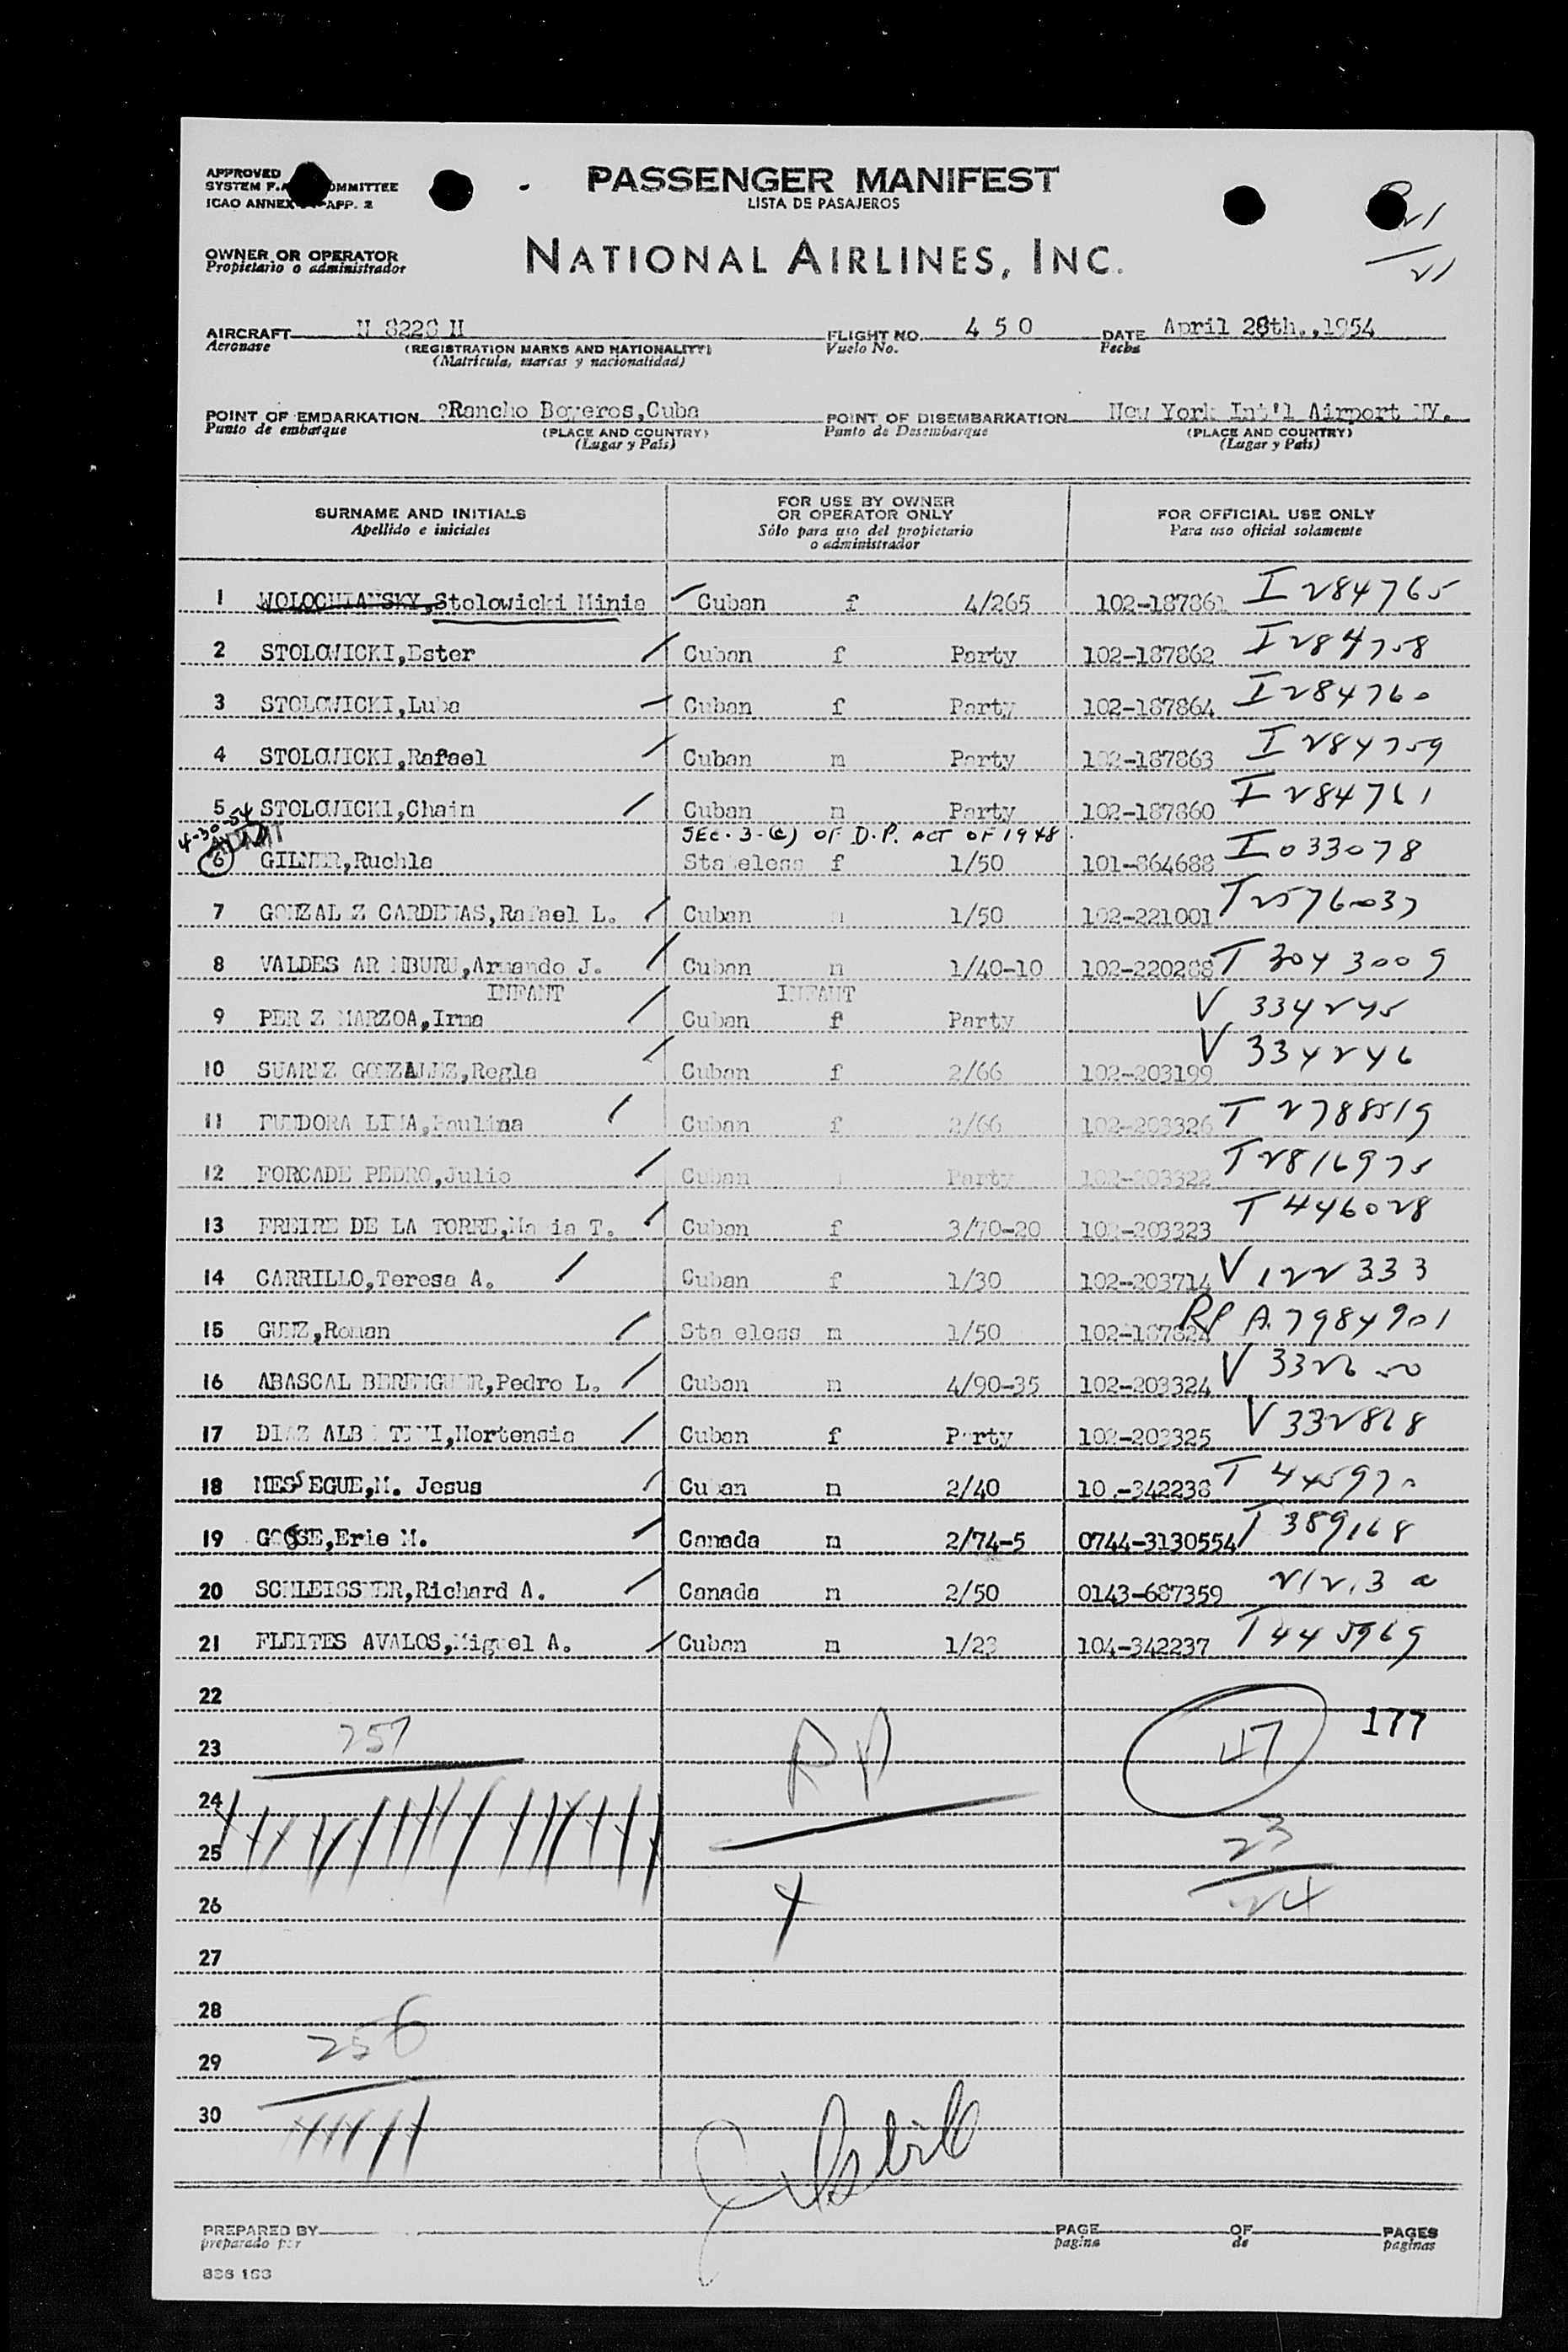 APPROVED
SYSTEM F.A. COMMITTEE
ICAO ANNEX APP. 2
PASSENGER MANIFEST
LISTA DE PASAJEROS
21
21
OWNER OR OPERATOR
Propietario o administrador
NATIONAL AIRLINES, INC.
AIRCRAFT N 8228 H FLIGHT NO. 4 5 0 DATE April 28th.,1954
Aeronave (REGISTRATION MARKS AND NATIONALITY) Vuelo No. Fecha
(Matrícula, marcas y nacionalidad)
POINT OF EMBARKATION ?Rancho Boyeros,Cuba POINT OF DISEMBARKATION New York Int'l Airport NY.
Punto de embarque (PLACE AND COUNTRY) Punto de Desembarque (PLACE AND COUNTRY)
(Lugar y País) (Lugar y País)
SURNAME AND INITIALS FOR USE BY OWNER OR OPERATOR ONLY FOR OFFICIAL USE ONLY
Apellido e iniciales Sólo para uso del propietario o administrador Para uso oficial solamente
1 WOLOCHIANSKY,Stolowicki Minia Cuban f 4/265 102-187861 I284765
2 STOLOWICKI,Ester Cuban f Party 102-187862 I284758
3 STOLOWICKI,Luba Cuban f Party 102-187864 I284760
4 STOLOWICKI,Rafael Cuban m Party 102-187863 I284759
5 STOLOWICKI,Chaim Cuban m Party 102-187860 I284761
4-30-54 ADMIT SEC. 3-(c) OF D.P. ACT OF 1948
6 GILNER,Ruchla Stateless f 1/50 101-864688 I033078
7 GONZAL Z CARDENAS,Rafael L. Cuban m 1/50 102-221001 T2576037
8 VALDES AR MBURU,Armando J. Cuban m 1/40-10 102-220288 T 3043009
INFANT INFANT
9 PER Z MARZOA,Irma Cuban f Party V 334245
10 SUAREZ GONZALEZ,Regla Cuban f 2/66 102-203199 V 334246
11 FUNDORA LIMA,Paulina Cuban f 2/66 102-203326 T 2788519
12 FORCADE PEDRO,Julio Cuban Party 102-203322 T2816975
13 FREIRE DE LA TORRE,Ma ia T. Cuban f 3/70-20 102-203323 T 446028
14 CARRILLO,Teresa A. Cuban f 1/30 102-203714 V 122333
15 GUNZ,Roman Sta eless m 1/50 102-187824 RP A.7984901
16 ABASCAL BERENGUER,Pedro L. Cuban m 4/90-35 102-203324 V 3326
17 DIAZ ALB TINI,Hortensia Cuban f Party 102-203325 V 332828
18 MESSEGUE,M. Jesus Cuban m 2/40 10 -342238 T 445970
19 GOOSE,Erle M. Canada m 2/74-5 0744-3130554 T 389168
20 SCHLEISSNER,Richard A. Canada m 2/50 0143-687359
21 FLEITES AVALOS,Miguel A. Cuban m 1/23 104-342237 T445969
22
23 257 RP 47 177
24
25 23
26 24
27
28
29 256
30
PREPARED BY PAGE OF PAGES
preparado por pagina de paginas